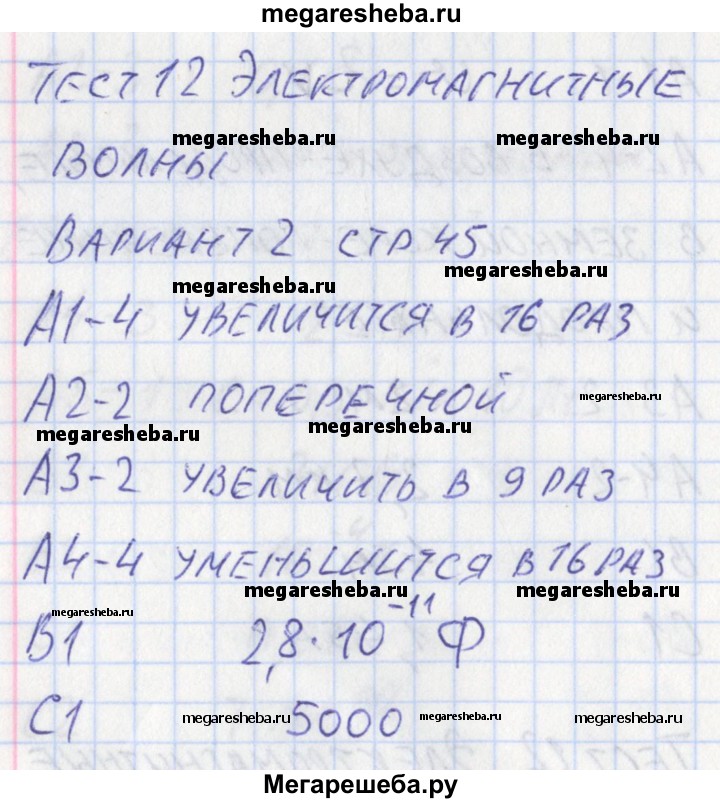 megaresheba.ru
ТЕСТ 12 ЭЛЕКТРОМАГНИТНЫЕ
megaresheba.ru megaresheba.ru
ВОЛНЫ
ВАРИАНТ 2 СТР 45
megaresheba.ru
megaresheba.ru
А1-4 УВЕЛИЧИТСЯ В 16 РАЗ
А2-2 ПОПЕРЕЧНОЙ megaresheba.ru
megaresheba.ru megaresheba.ru
А3-2 УВЕЛИЧИТЬ В 9 РАЗ
А4-4 УМЕНЬШИТСЯ В 16 РАЗ
megaresheba.ru megaresheba.ru
megaresheba.ru
В1 2,8·10⁻¹¹ Ф
С1 megaresheba.ru 5000 megaresheba.ru megaresheba.ru
Мегарешеба.ру